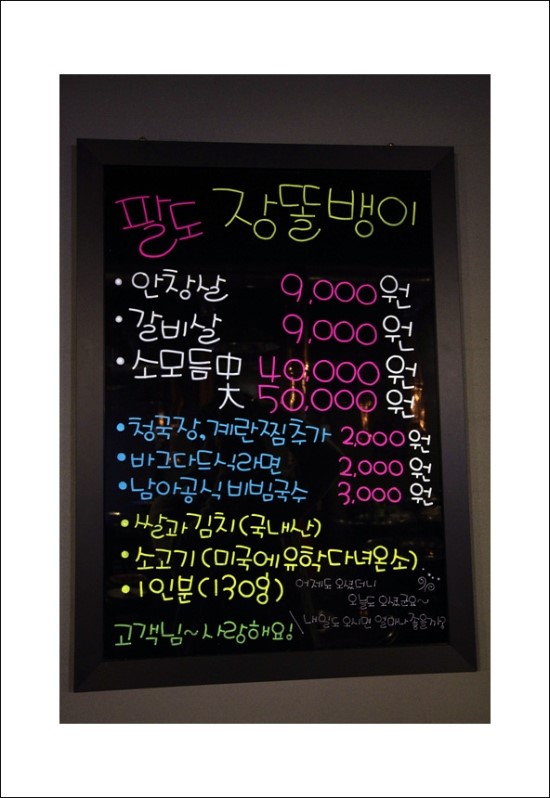 팔도 장똘뱅이
• 안창살 9,000원
• 갈비살 9,000원
• 소모듬 中 40,000원
大 50,000원
• 청국장, 계란찜추가 2,000원
• 바그다드식라면 2,000원
• 남아공식비빔국수 3,000원
• 쌀과김치(국내산)
• 소고기(미국에유학다녀온소)
• 1인분(130g)
어제도 오셨더니
오늘도 오셨군요~
내일도 오시면 얼마나 좋을까?
고객님~사랑해요!